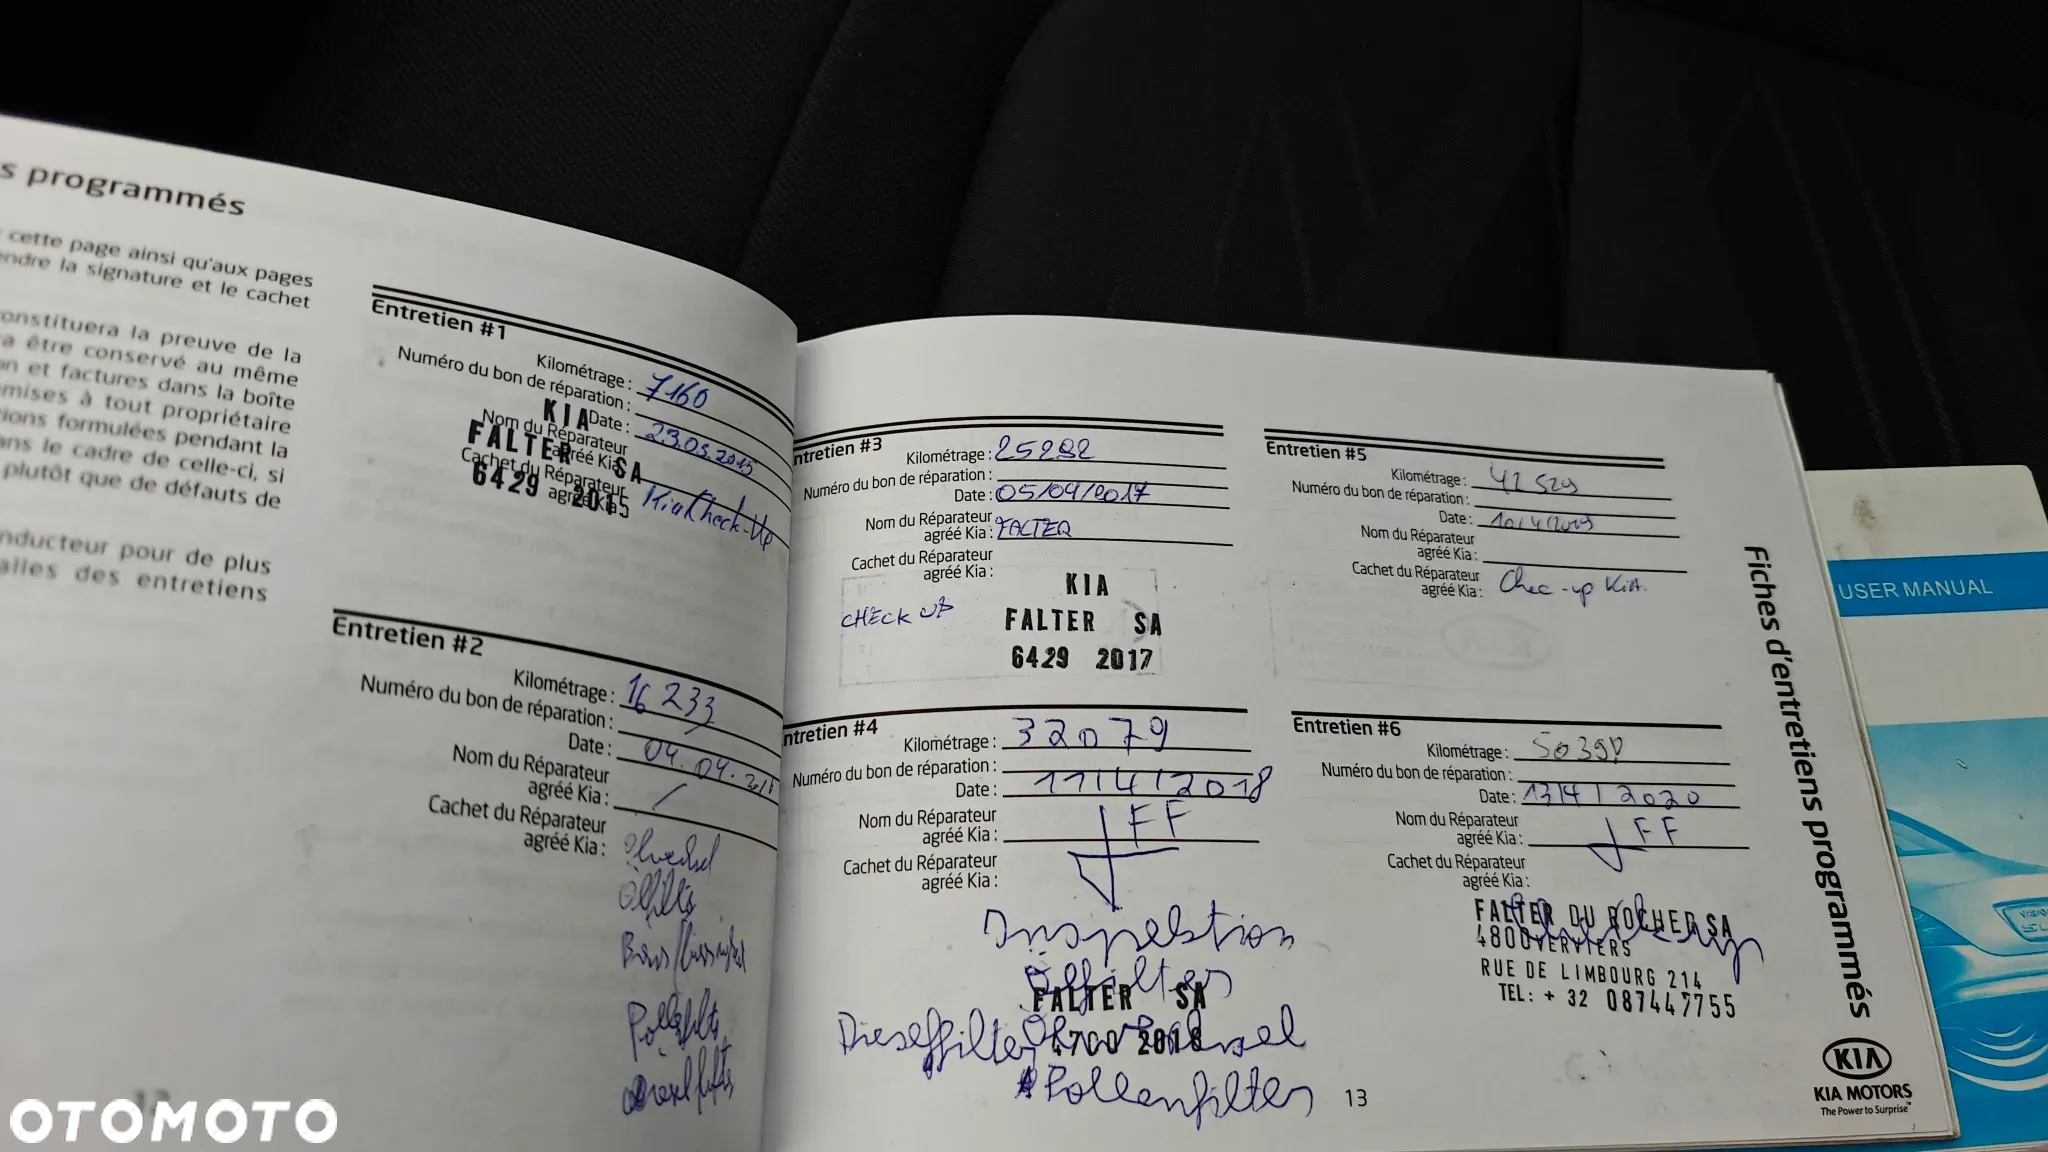 s programmés
cette page ainsi qu'aux pages
endre la signature et le cachet
onstituera la preuve de la
a être conservé au même
on et factures dans la boîte
mises à tout propriétaire
tions formulées pendant la
ans le cadre de celle-ci, si
plutôt que de défauts de
nducteur pour de plus
alles des entretiens
Entretien #1
Kilométrage : 7160
Numéro du bon de réparation :
Date : 23.03.2015
Nom du Réparateur
agréé Kia :
Cachet du Réparateur
agréé Kia : Kia Check-Up
KIA
FALTER SA
6429 2015
Entretien #2
Kilométrage : 16 233
Numéro du bon de réparation :
Date : 04.04.
Nom du Réparateur
agréé Kia : /
Cachet du Réparateur
agréé Kia :
Ölwechsel
Ölfilter
Pollenfilter
Dieselfilter
ntretien #3
Kilométrage : 25292
Numéro du bon de réparation :
Date : 05/04/2017
Nom du Réparateur
agréé Kia : FALTER
Cachet du Réparateur
agréé Kia :
CHECK UP
KIA
FALTER SA
6429 2017
ntretien #4
Kilométrage : 32079
Numéro du bon de réparation :
Date : 11/4/2018
Nom du Réparateur
agréé Kia : FF
Cachet du Réparateur
agréé Kia :
Inspektion
Ölfilter
FALTER SA
4700 2018
Dieselfilter Ölwechsel
Pollenfilter
13
Entretien #5
Kilométrage : 42 529
Numéro du bon de réparation :
Date : 10/4/2019
Nom du Réparateur
agréé Kia :
Cachet du Réparateur
agréé Kia : Chec-up KIA.
Entretien #6
Kilométrage :
Numéro du bon de réparation :
Date : 13/4/2020
Nom du Réparateur
agréé Kia : FF
Cachet du Réparateur
agréé Kia :
FALTER DU ROCHER SA
4800 VERVIERS
RUE DE LIMBOURG 214
TEL: + 32 087447755
Fiches d'entretiens programmés
KIA
KIA MOTORS
The Power to Surprise™
USER MANUAL
OTOMOTO